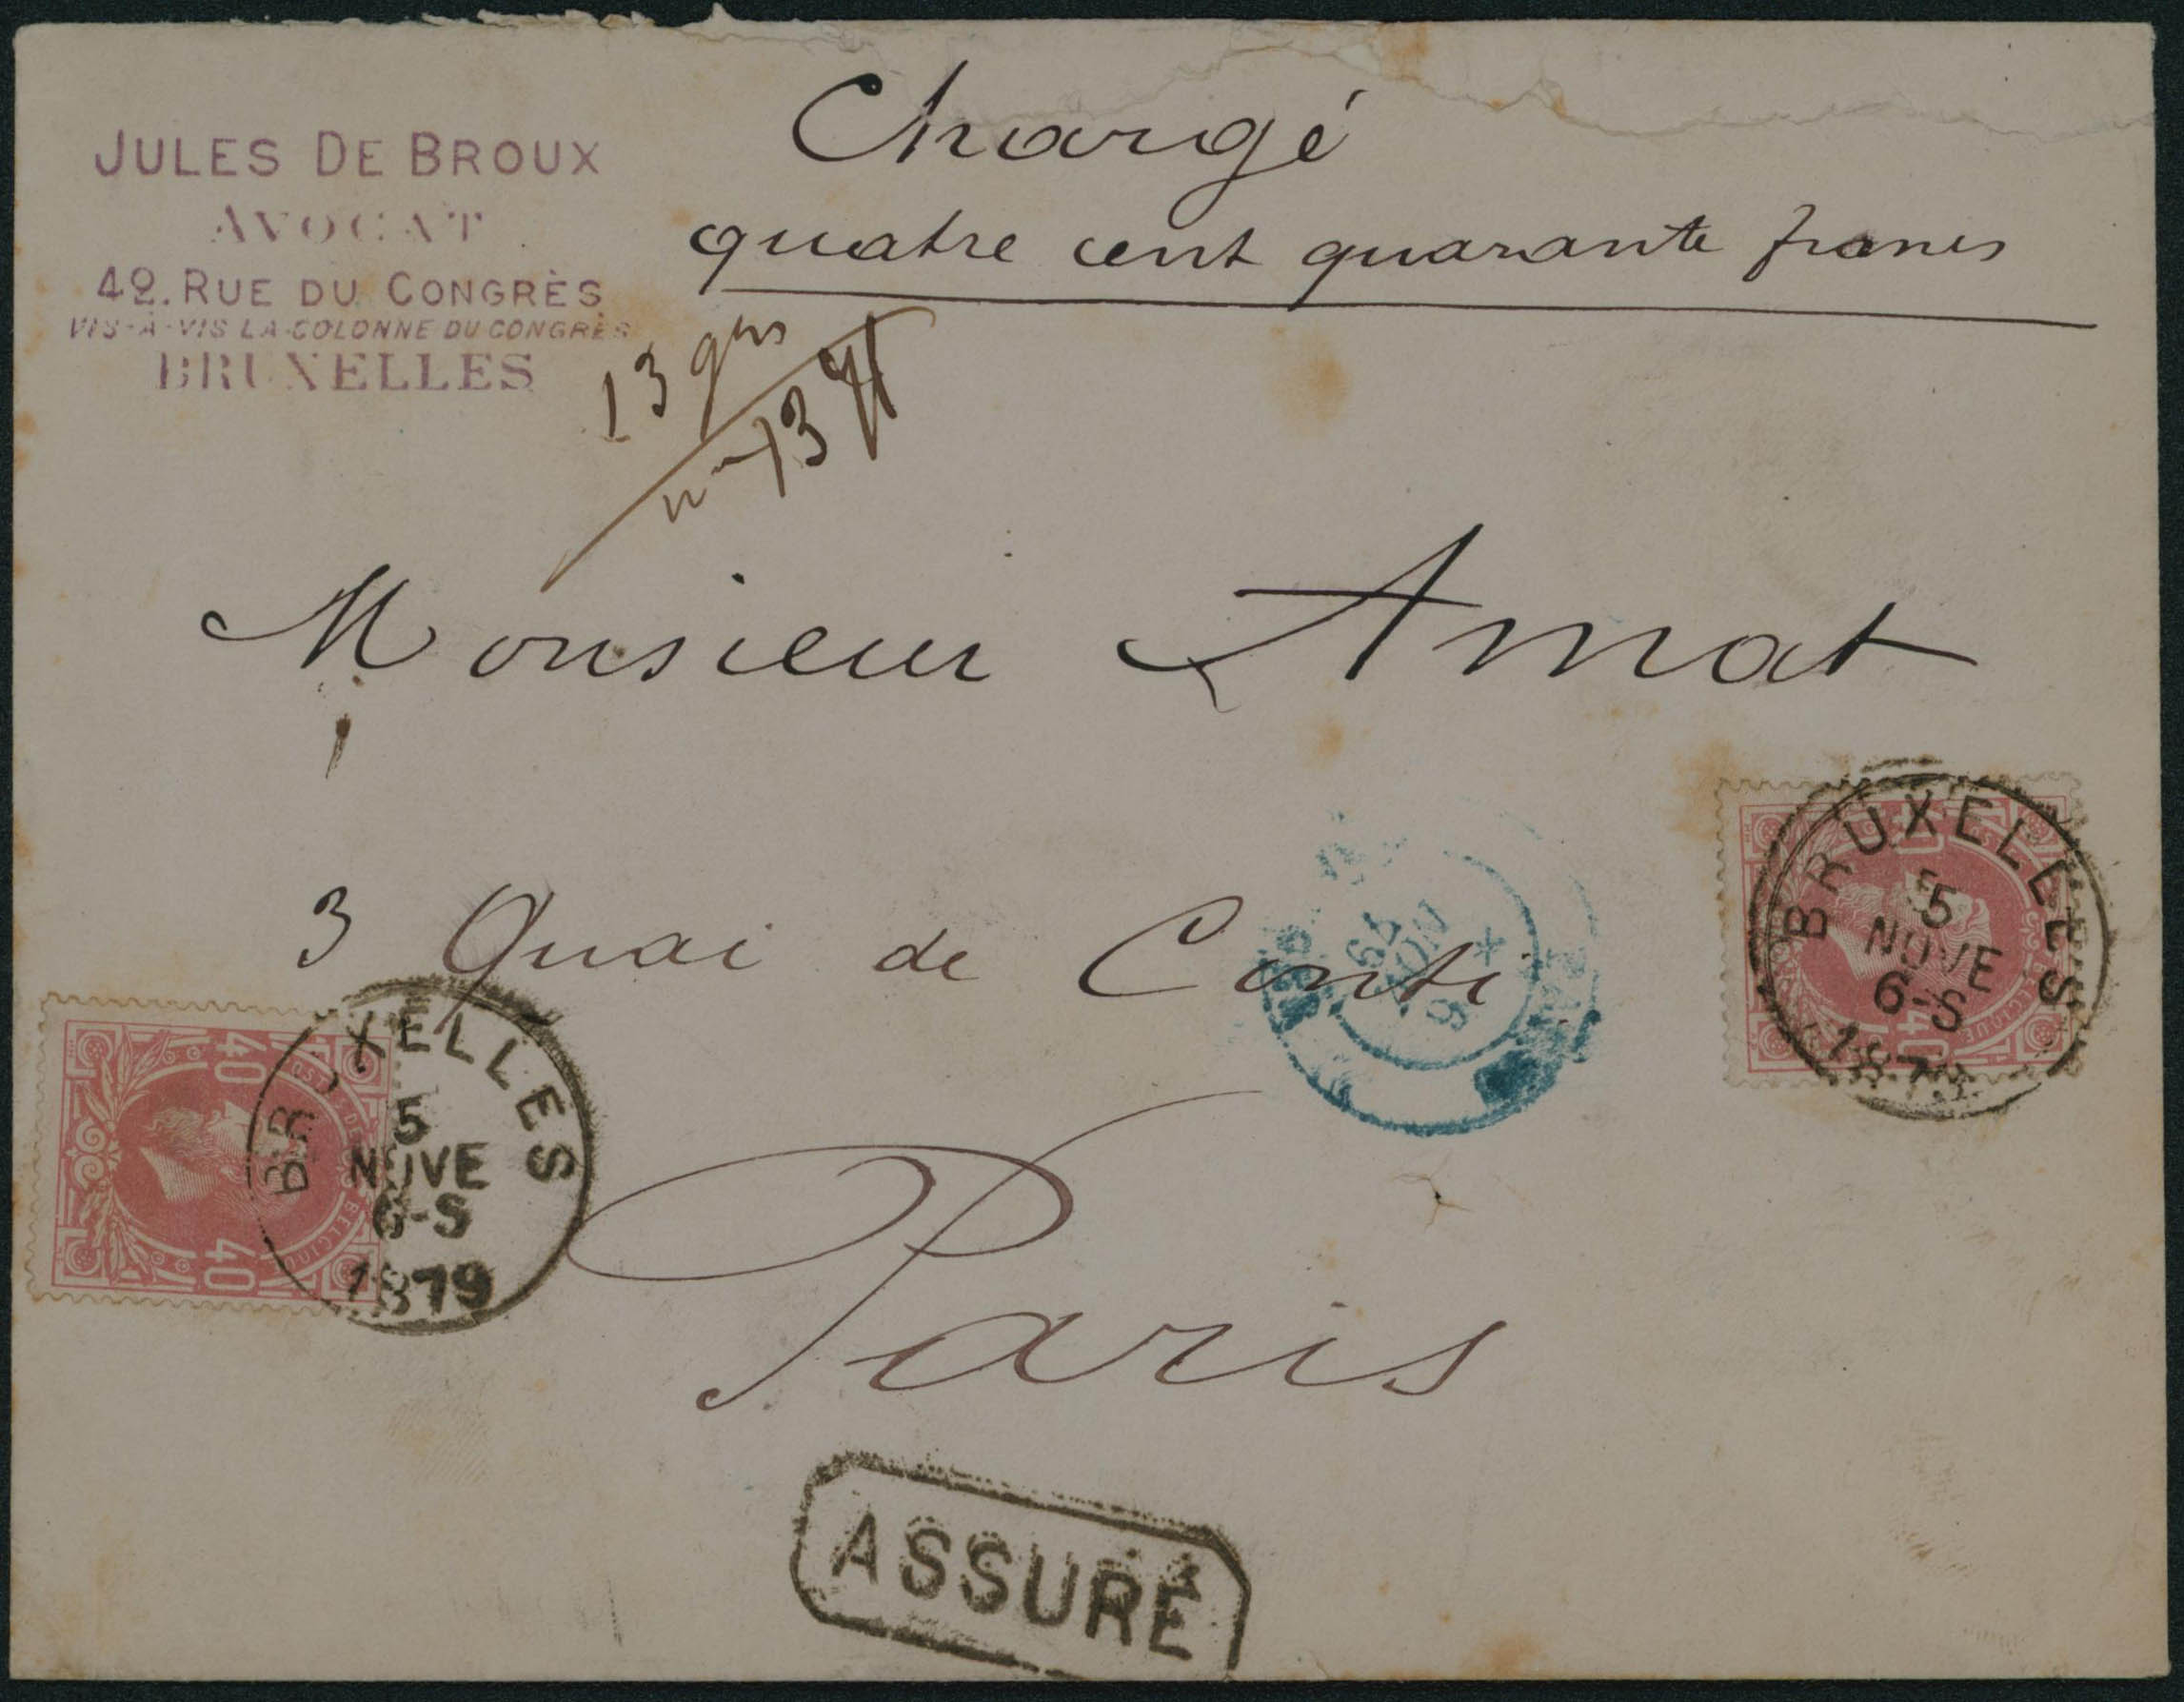 JULES DE BROUX
AVOCAT
42. RUE DU CONGRÈS
VIS-À-VIS LA COLONNE DU CONGRÈS
BRUXELLES
Chargé
quatre cent quarante francs
13 grs
13
Monsieur Amat
3 Quai de Conti
Paris
BRUXELLES
5
NOVE
6-S
1879
40
40
BELGIQUE
NOV
79
BRUXELLES
5
NOVE
6-S
1879
40
ASSURÉ